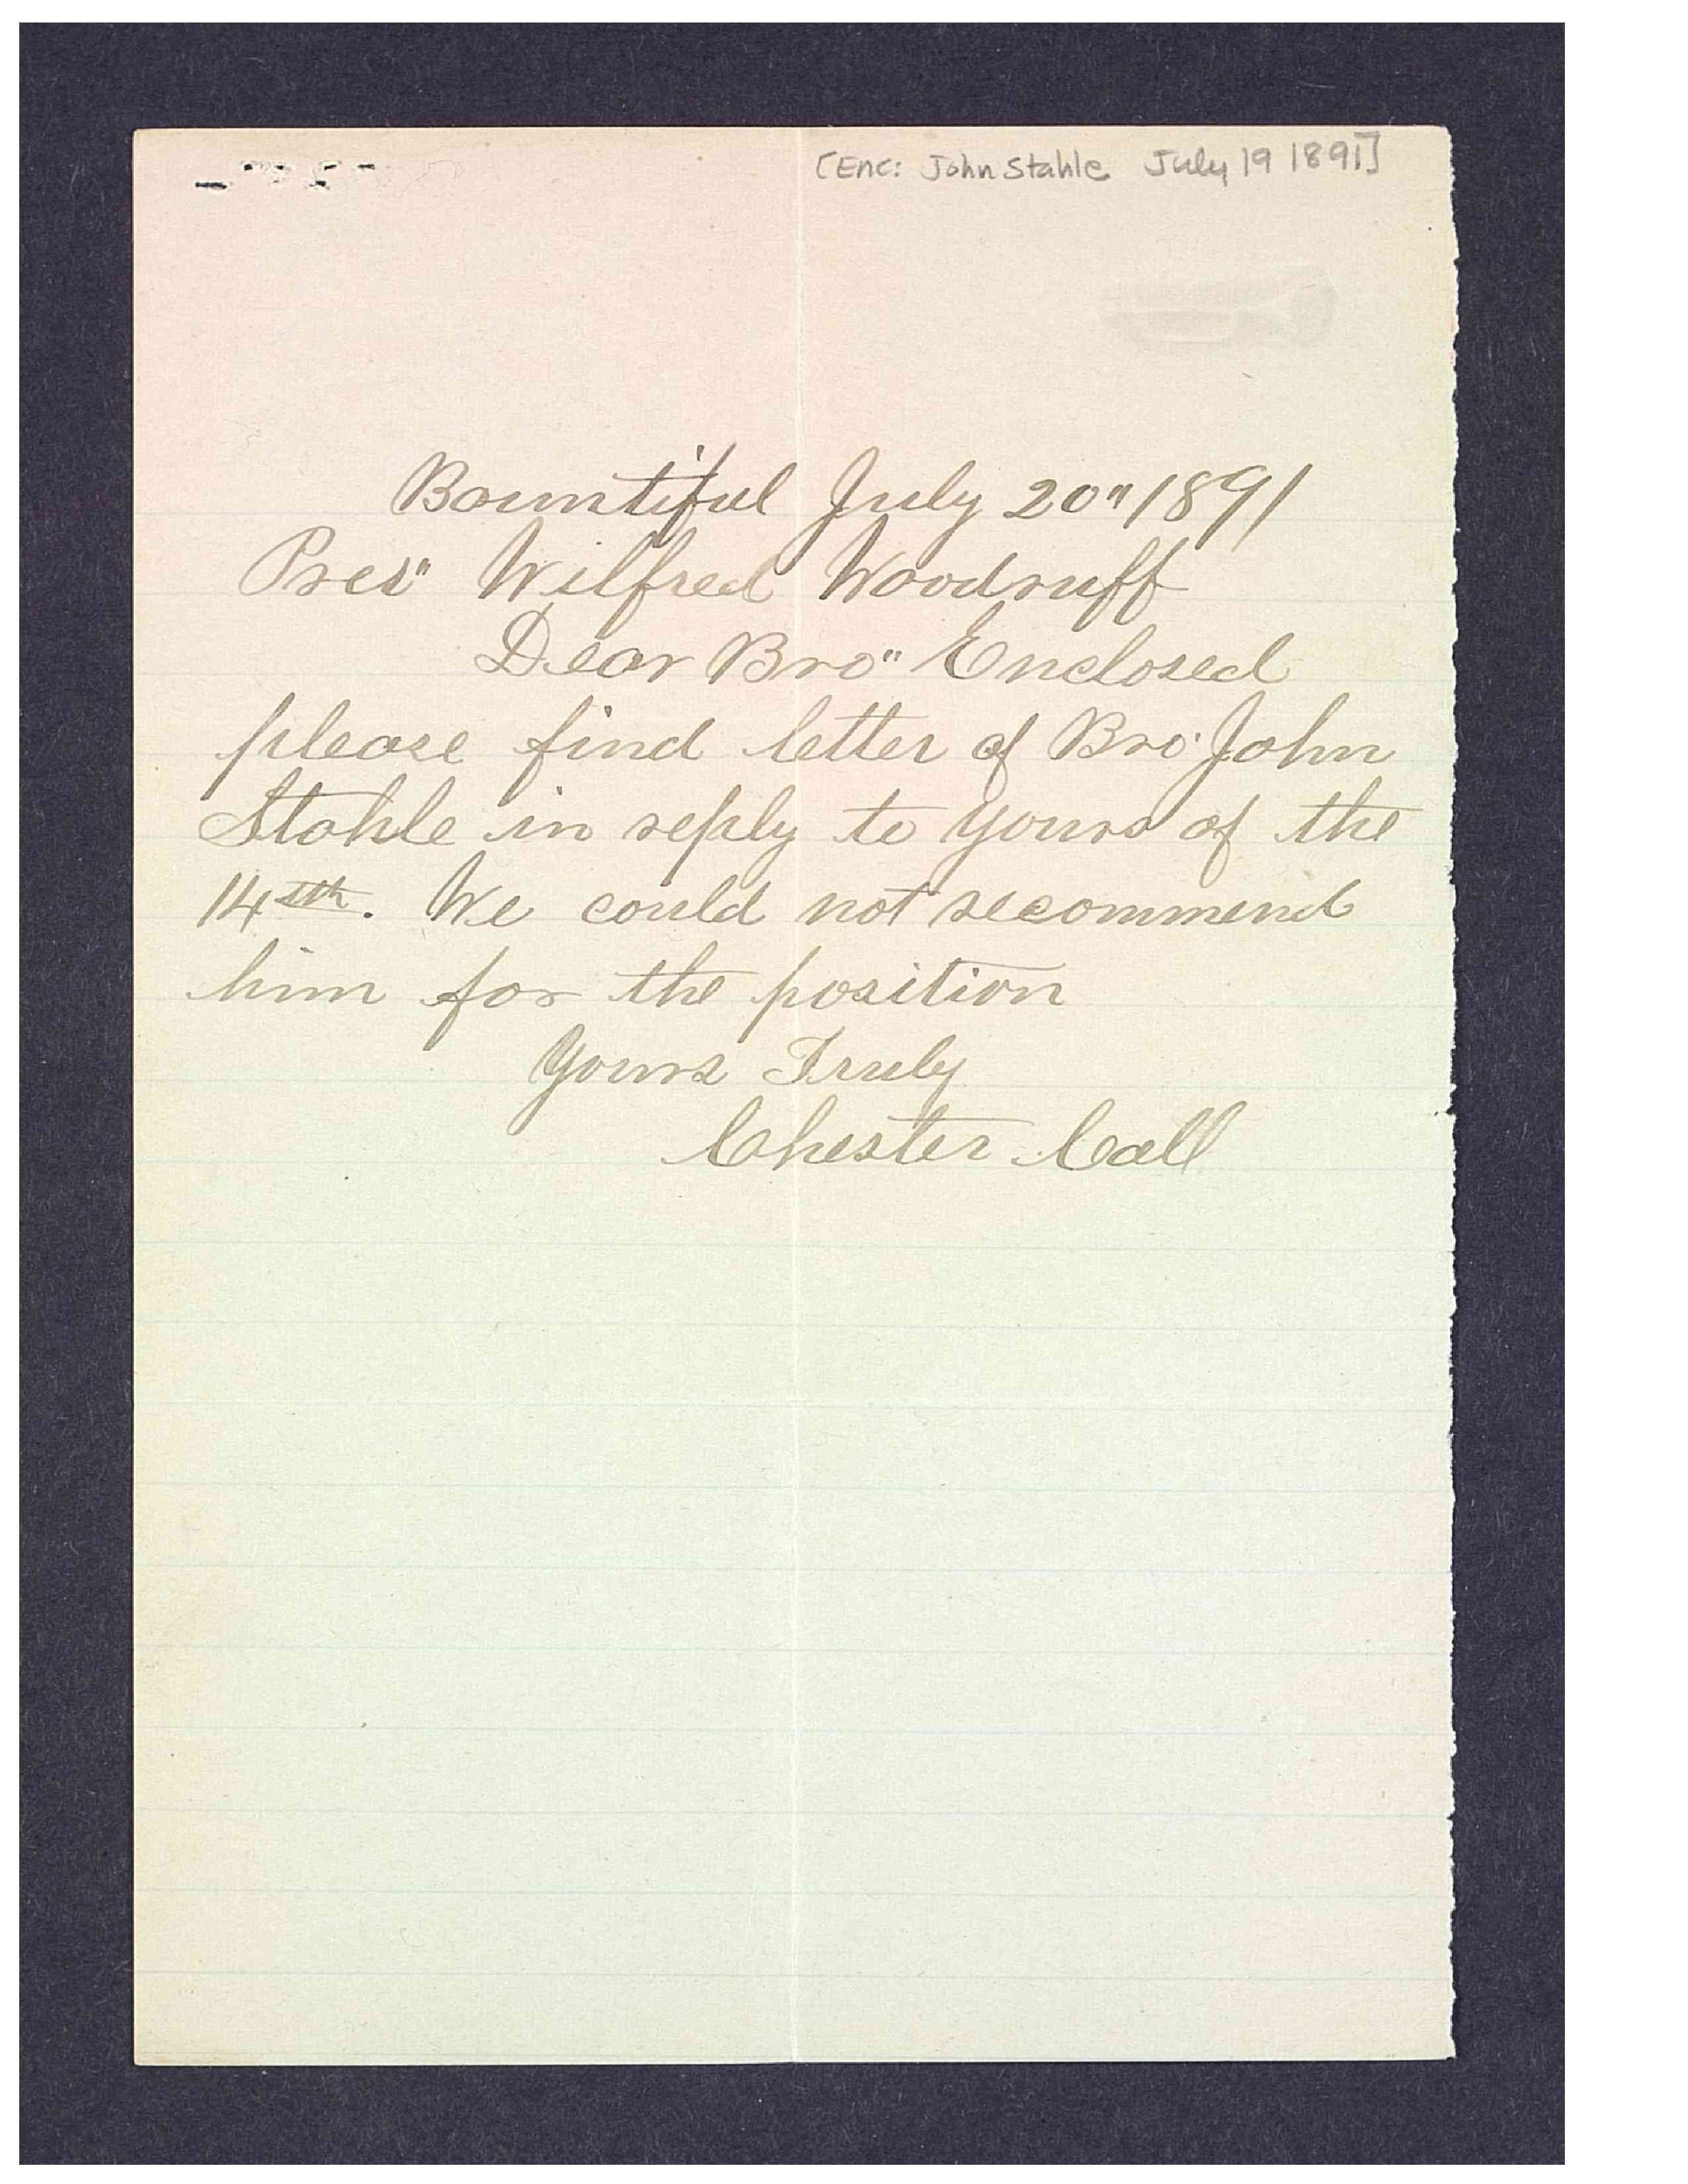 [Enc: John Stahle July 19 1891]
Bountiful July 20" 1891
Pres" Wilfred Woodruff
Dear Bro" Enclosed
please find letter of Bro. John
Stahle in reply to yours of the
14th. We could not recommend
him for the position
Yours Truly
Chester Call